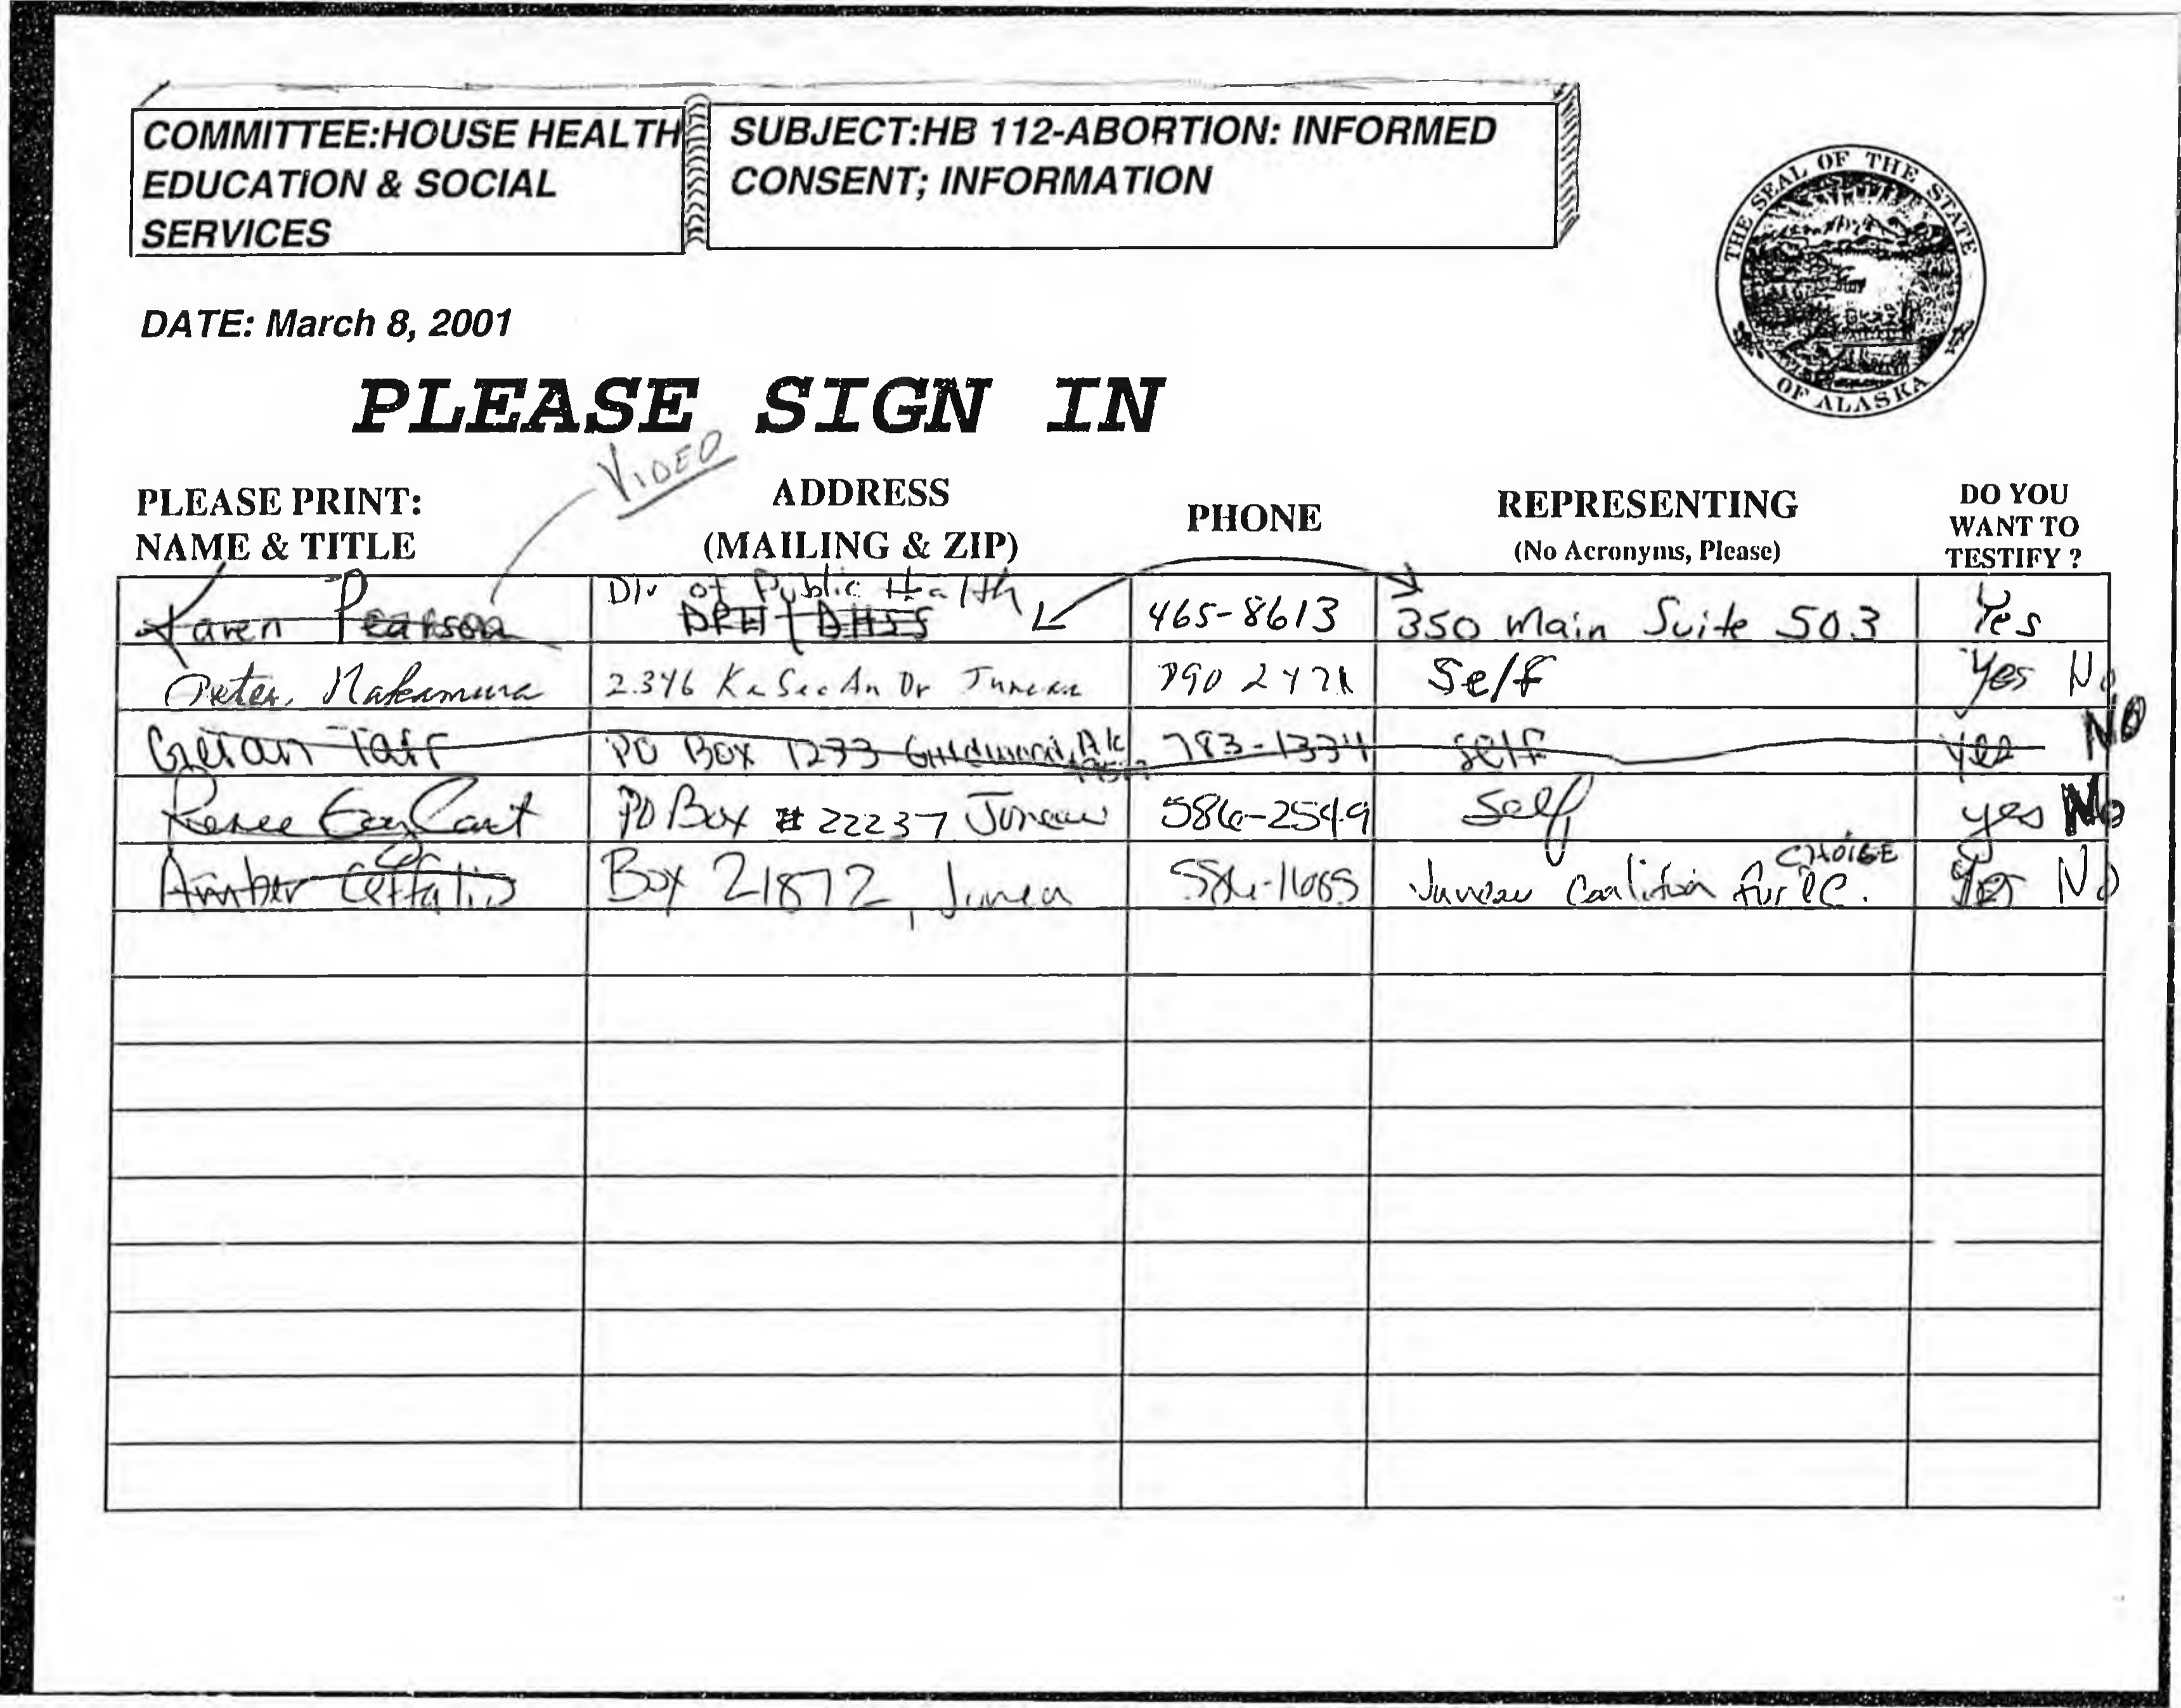 COMMITTEE:HOUSE HEALTH
EDUCATION & SOCIAL
SERVICES
SUBJECT:HB 112-ABORTION: INFORMED
CONSENT; INFORMATION
THE SEAL OF THE STATE
OF ALASKA
DATE: March 8, 2001
PLEASE SIGN IN
VIDEO
PLEASE PRINT:
NAME & TITLE
ADDRESS
(MAILING & ZIP)
PHONE
REPRESENTING
(No Acronyms, Please)
DO YOU
WANT TO
TESTIFY ?
Div of Public Health
Karen Pearson DPH / DHSS 465-8613 350 Main Suite 503 Yes
Peter Nakamura 2346 Ka See An Dr Juneau 790 Self Yes No
PO Box 1233 Girdwood, Ak 783-1334 self yes NO
Renee PO Box # 22237 Juneau 586-2549 Self yes No
CHOICE
Amber Box 21872, Juneau Juneau Coalition for Yes No